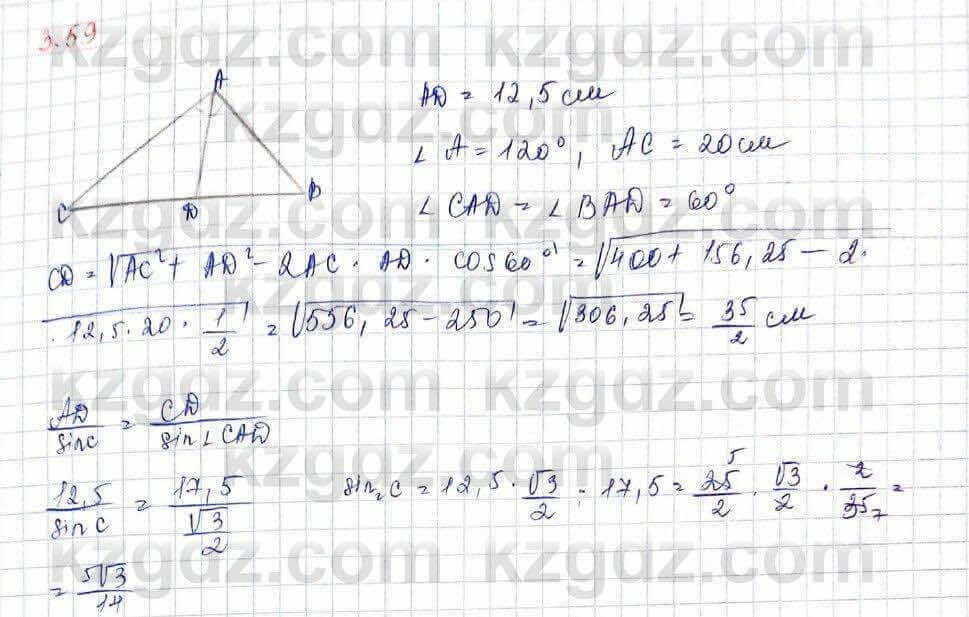 3.59
A
C
D
B
AD = 12,5 см
∠ A = 120°, AC = 20 см
∠ CAD = ∠ BAD = 60°
CD = √AC² + AD² - 2AC · AD · cos 60° = √400 + 156,25 - 2 ·
· 12,5 · 20 · 1/2 = √556,25 - 250 = √306,25 = 35/2 см
AD/sin C = CD/sin∠CAD
12,5/sin C = 17,5/(√3/2) sin C = 12,5 · √3/2 : 17,5 = 25/2 · √3/2 · 2/35 =
5
7
= 5√3/14
kzgdz.com